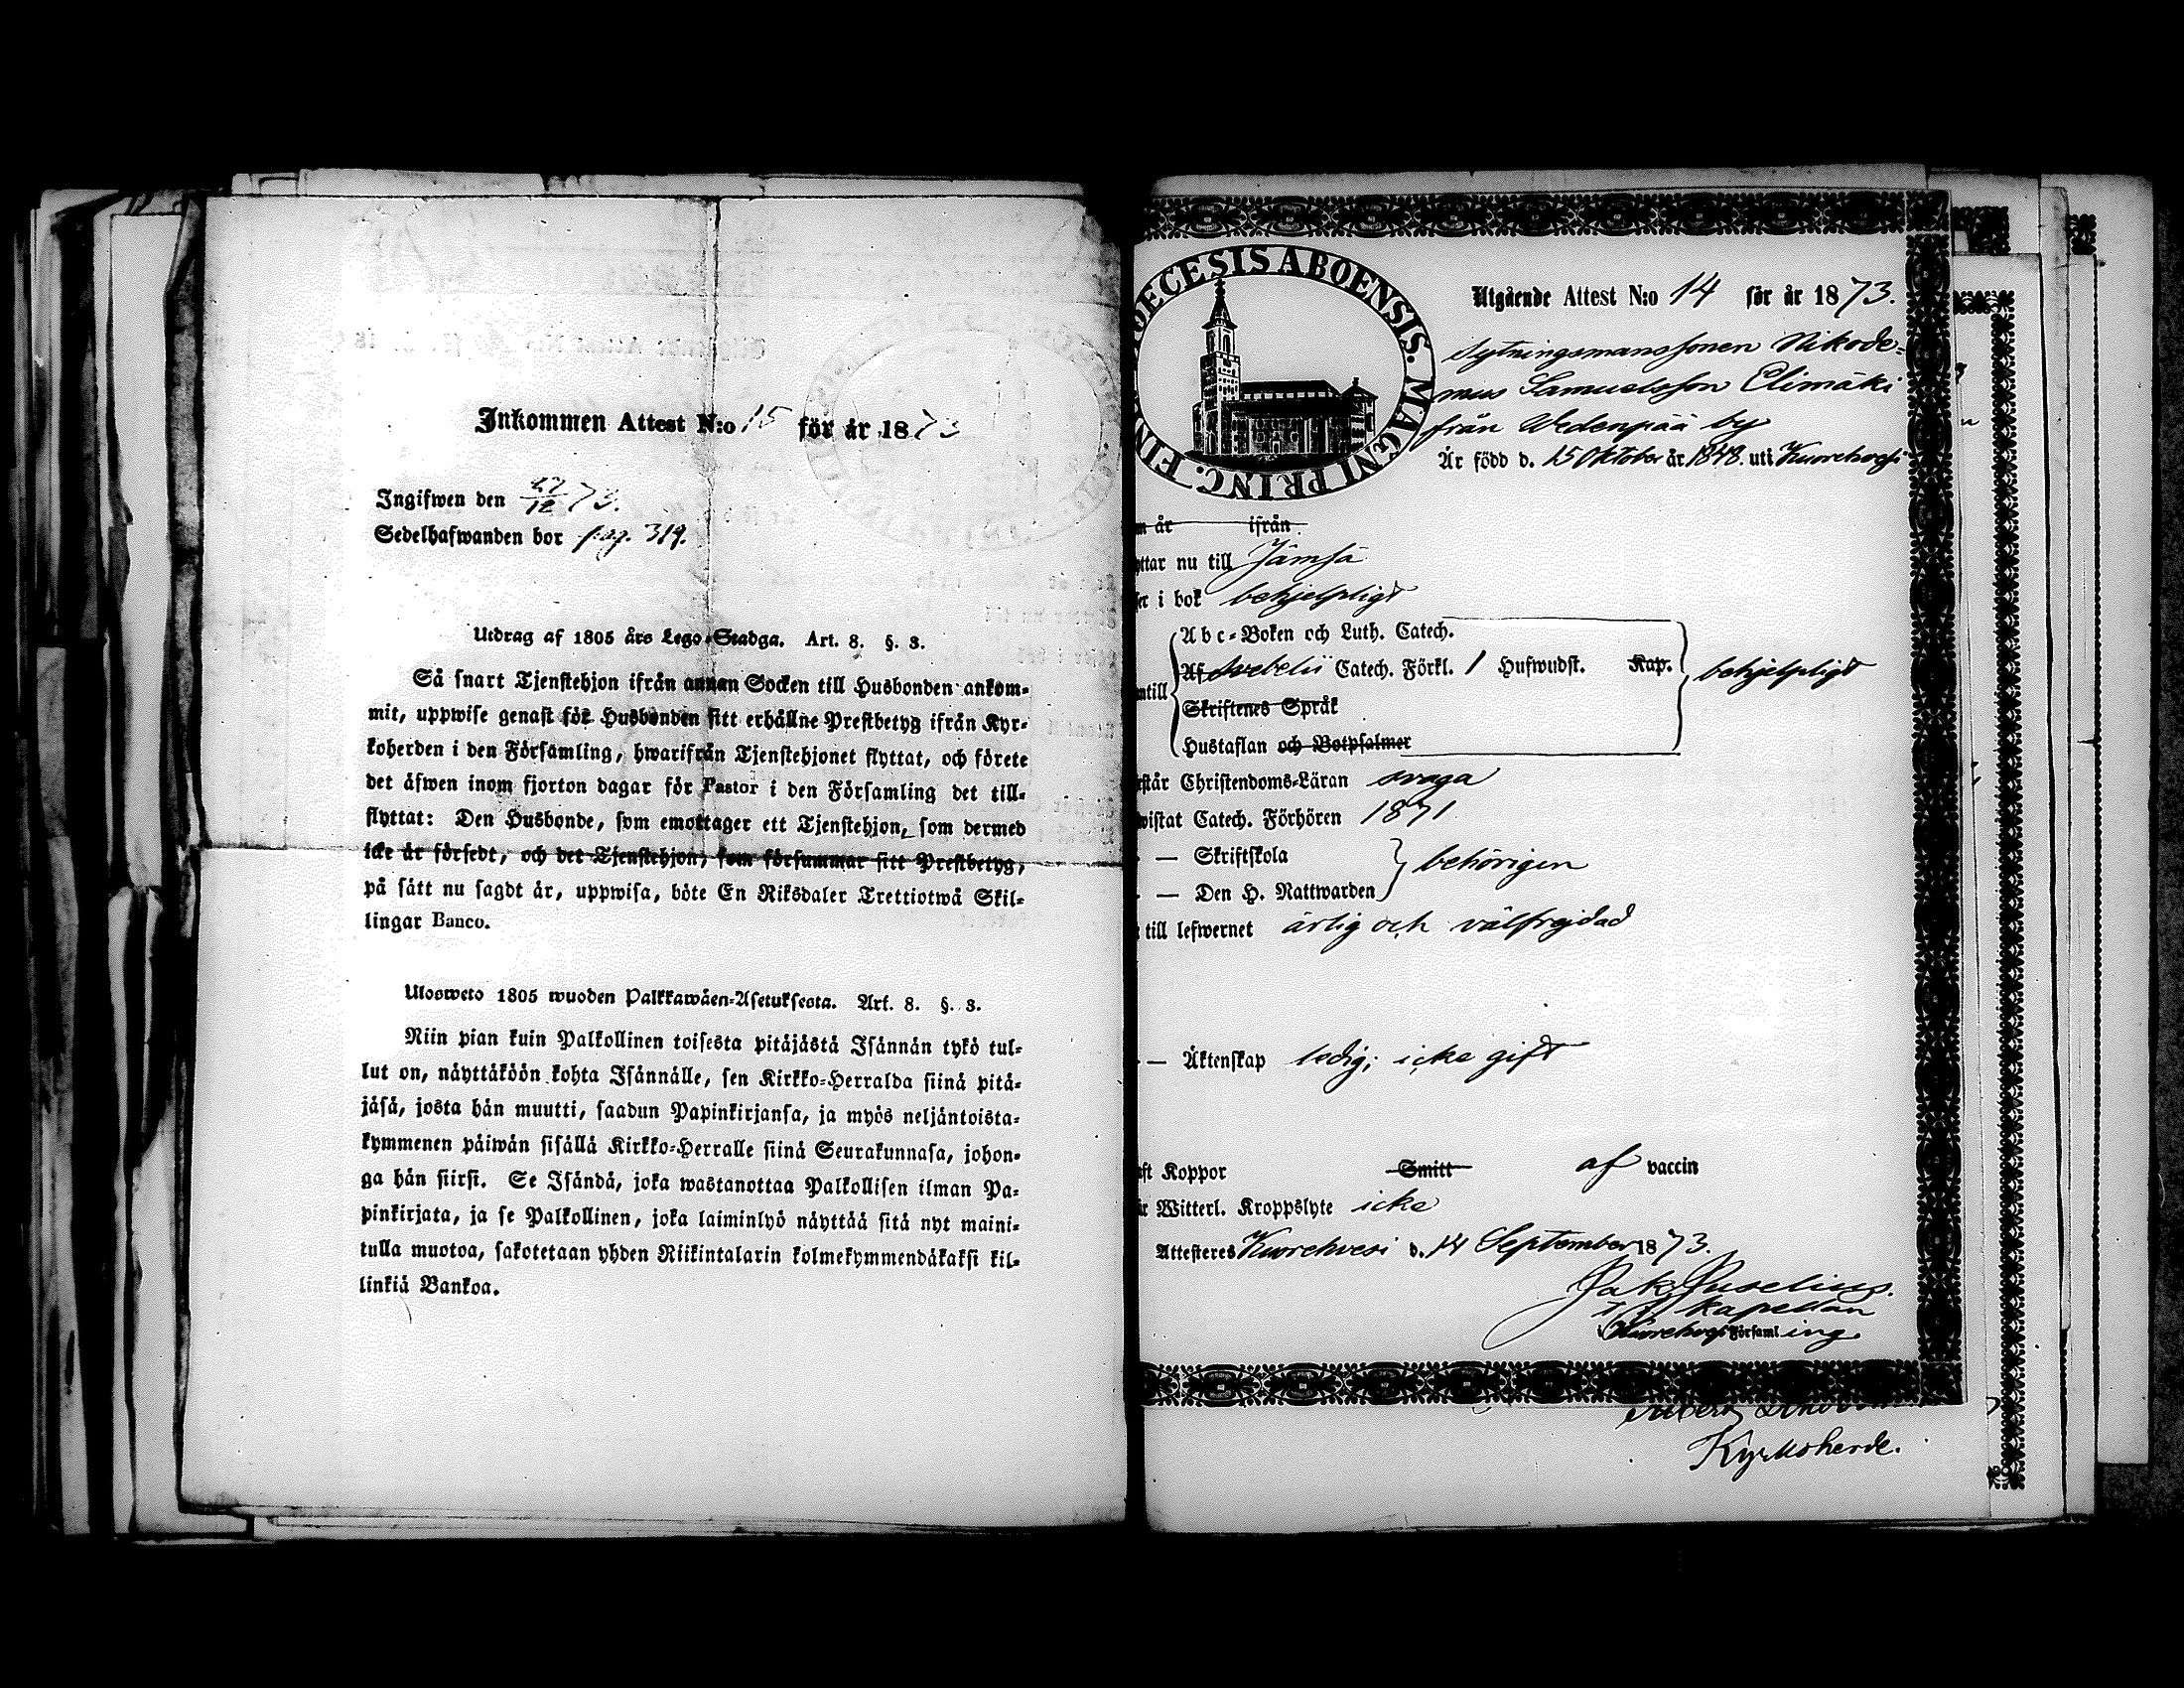 Inkommen Attest N:o 15 för år 1873
Ingifwen den 27/12 73.
Sedelhafwanden bor pag. 319.
Utdrag af 1805 års Lego-Stadga. Art. 8. §. 3.
Så snart Tjenstehjon ifrån annan Socken till Husbonden ankom-
mit, uppwise genast för Husbonden sitt erhållne Prestbetyg ifrån Kyr-
koherden i den Församling, hwarifrån Tjenstehjonet flyttat, och förete
det äfwen inom fjorton dagar för Pastor i den Församling det till-
flyttat: Den Husbonde, som emottager ett Tjenstehjon, som dermed
icke är försedt, och det Tjenstehjon, som försummar sitt Prestbetyg,
på sätt nu sagdt är, uppwisa, böte En Riksdaler Trettiotwå Skil-
lingar Banco.
Ulosweto 1805 wuoden Palkkawäen-Asetuksesta. Art. 8. §. 3.
Niin pian kuin Palkollinen toisesta pitäjästä Isännän tykö tul-
lut on, näyttäköön kohta Isännälle, sen Kirkko-Herralda siinä pitä-
jäsä, josta hän muutti, saadun Papinkirjansa, ja myös neljäntoista-
kymmenen päiwän sisällä Kirkko-Herralle siinä Seurakunnasa, johon-
ga hän siirsi. Se Isändä, joka wastanottaa Palkollisen ilman Pa-
pinkirjata, ja se Palkollinen, joka laiminlyö näyttää sitä nyt maini-
tulla muotoa, sakotetaan yhden Riikintalarin kolmekymmendäkaksi kil-
linkiä Bankoa.
ECESIS ABOENSIS. MAGNI PRINC. FIN
Utgående Attest N:o 14 för år 1873.
Sytningsmanssonen Nikode-
mus Samuelsson Elimäki
från Wedenpää by
Är född d. 15 Oktober år 1848. uti Kuorehvesi
m år ifrån
yttar nu till Jämsä
ser i bok behjelpligt
Abc-Boken och Luth. Catech.
Af Svebelii Catech. Förkl. 1 Hufwudst. Kap.
behjelpligt
ntill
Skriftenes Språk
Hustaflan och Botpsalmer
rstår Christendoms-Läran svaga
wistat Catech. Förhören 1871
— Skriftskola
behörigen
— Den H. Nattwarden
till lefwernet ärlig och välfrejdad
— Äktenskap ledig; icke gift
aft Koppor Smitt af vaccin
är Witterl. Kroppslyte icke
Attesteras Kuorehvesi d. 14 September 1873.
Jak. Juselius.
kapellan
i Kuorehvesi Församling.
Kyrkoherde.